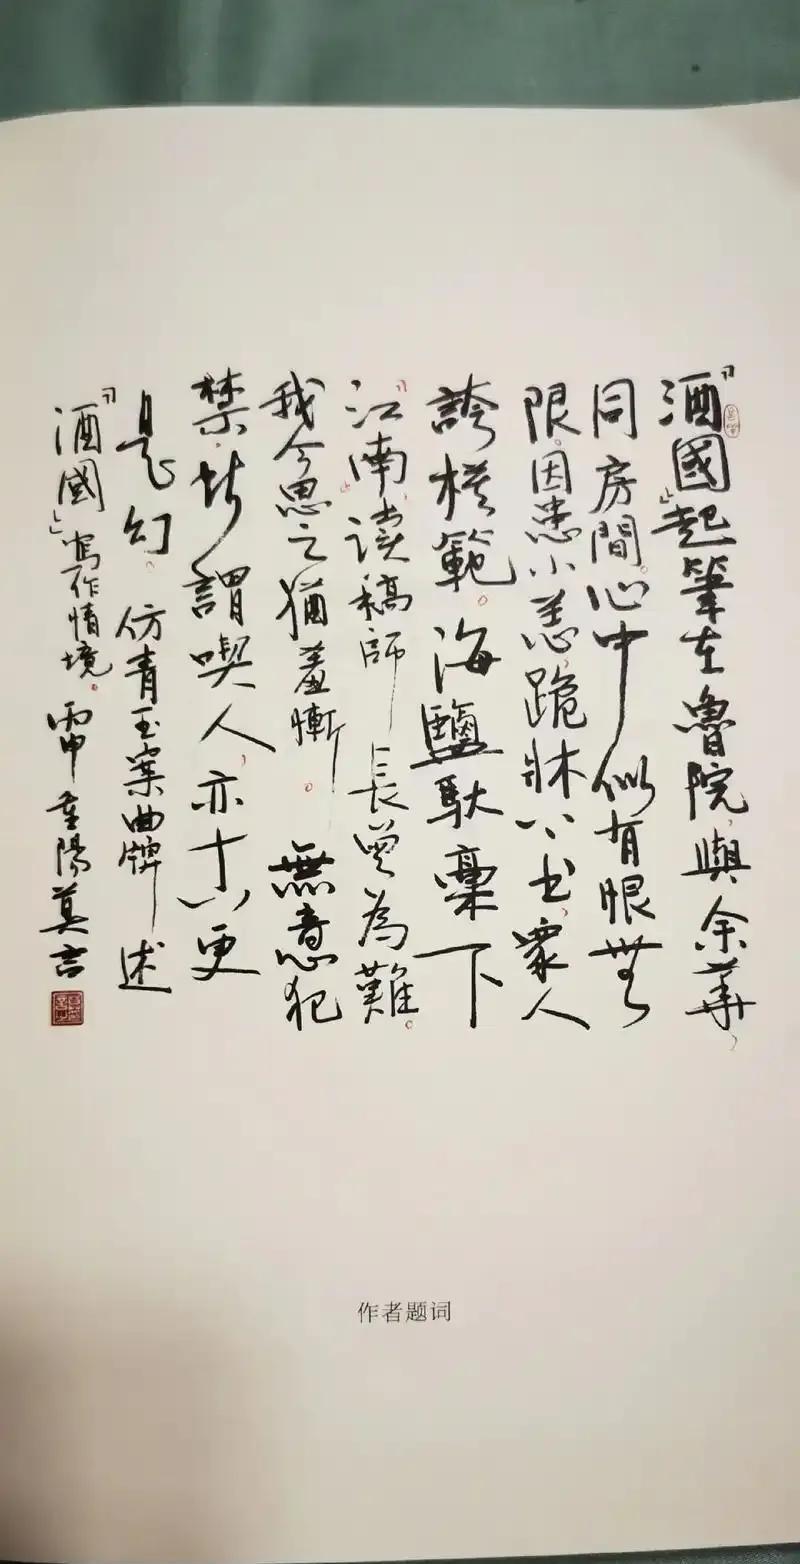 「酒國」起筆在魯院，與余華，
同房間。心中似有恨無
限。因患小恙，跪牀以书，眾人
誇模範。海鹽馱稾下
「江南」，读稿師長曾為難。
我今思之猶羞慚。無意犯
禁，皆謂喫人，亦十八更
是幻。仿青玉案曲牌述
「酒國」寫作情境。丙申重陽莫言
作者题词